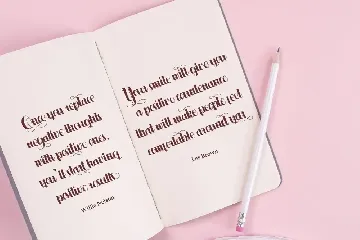 Once you replace
negative thoughts
with positive ones,
you'll start having
positive results.
Willie Nelson
Your smile will give you
a positive countenance
that will make people feel
comfortable around you.
Les Brown